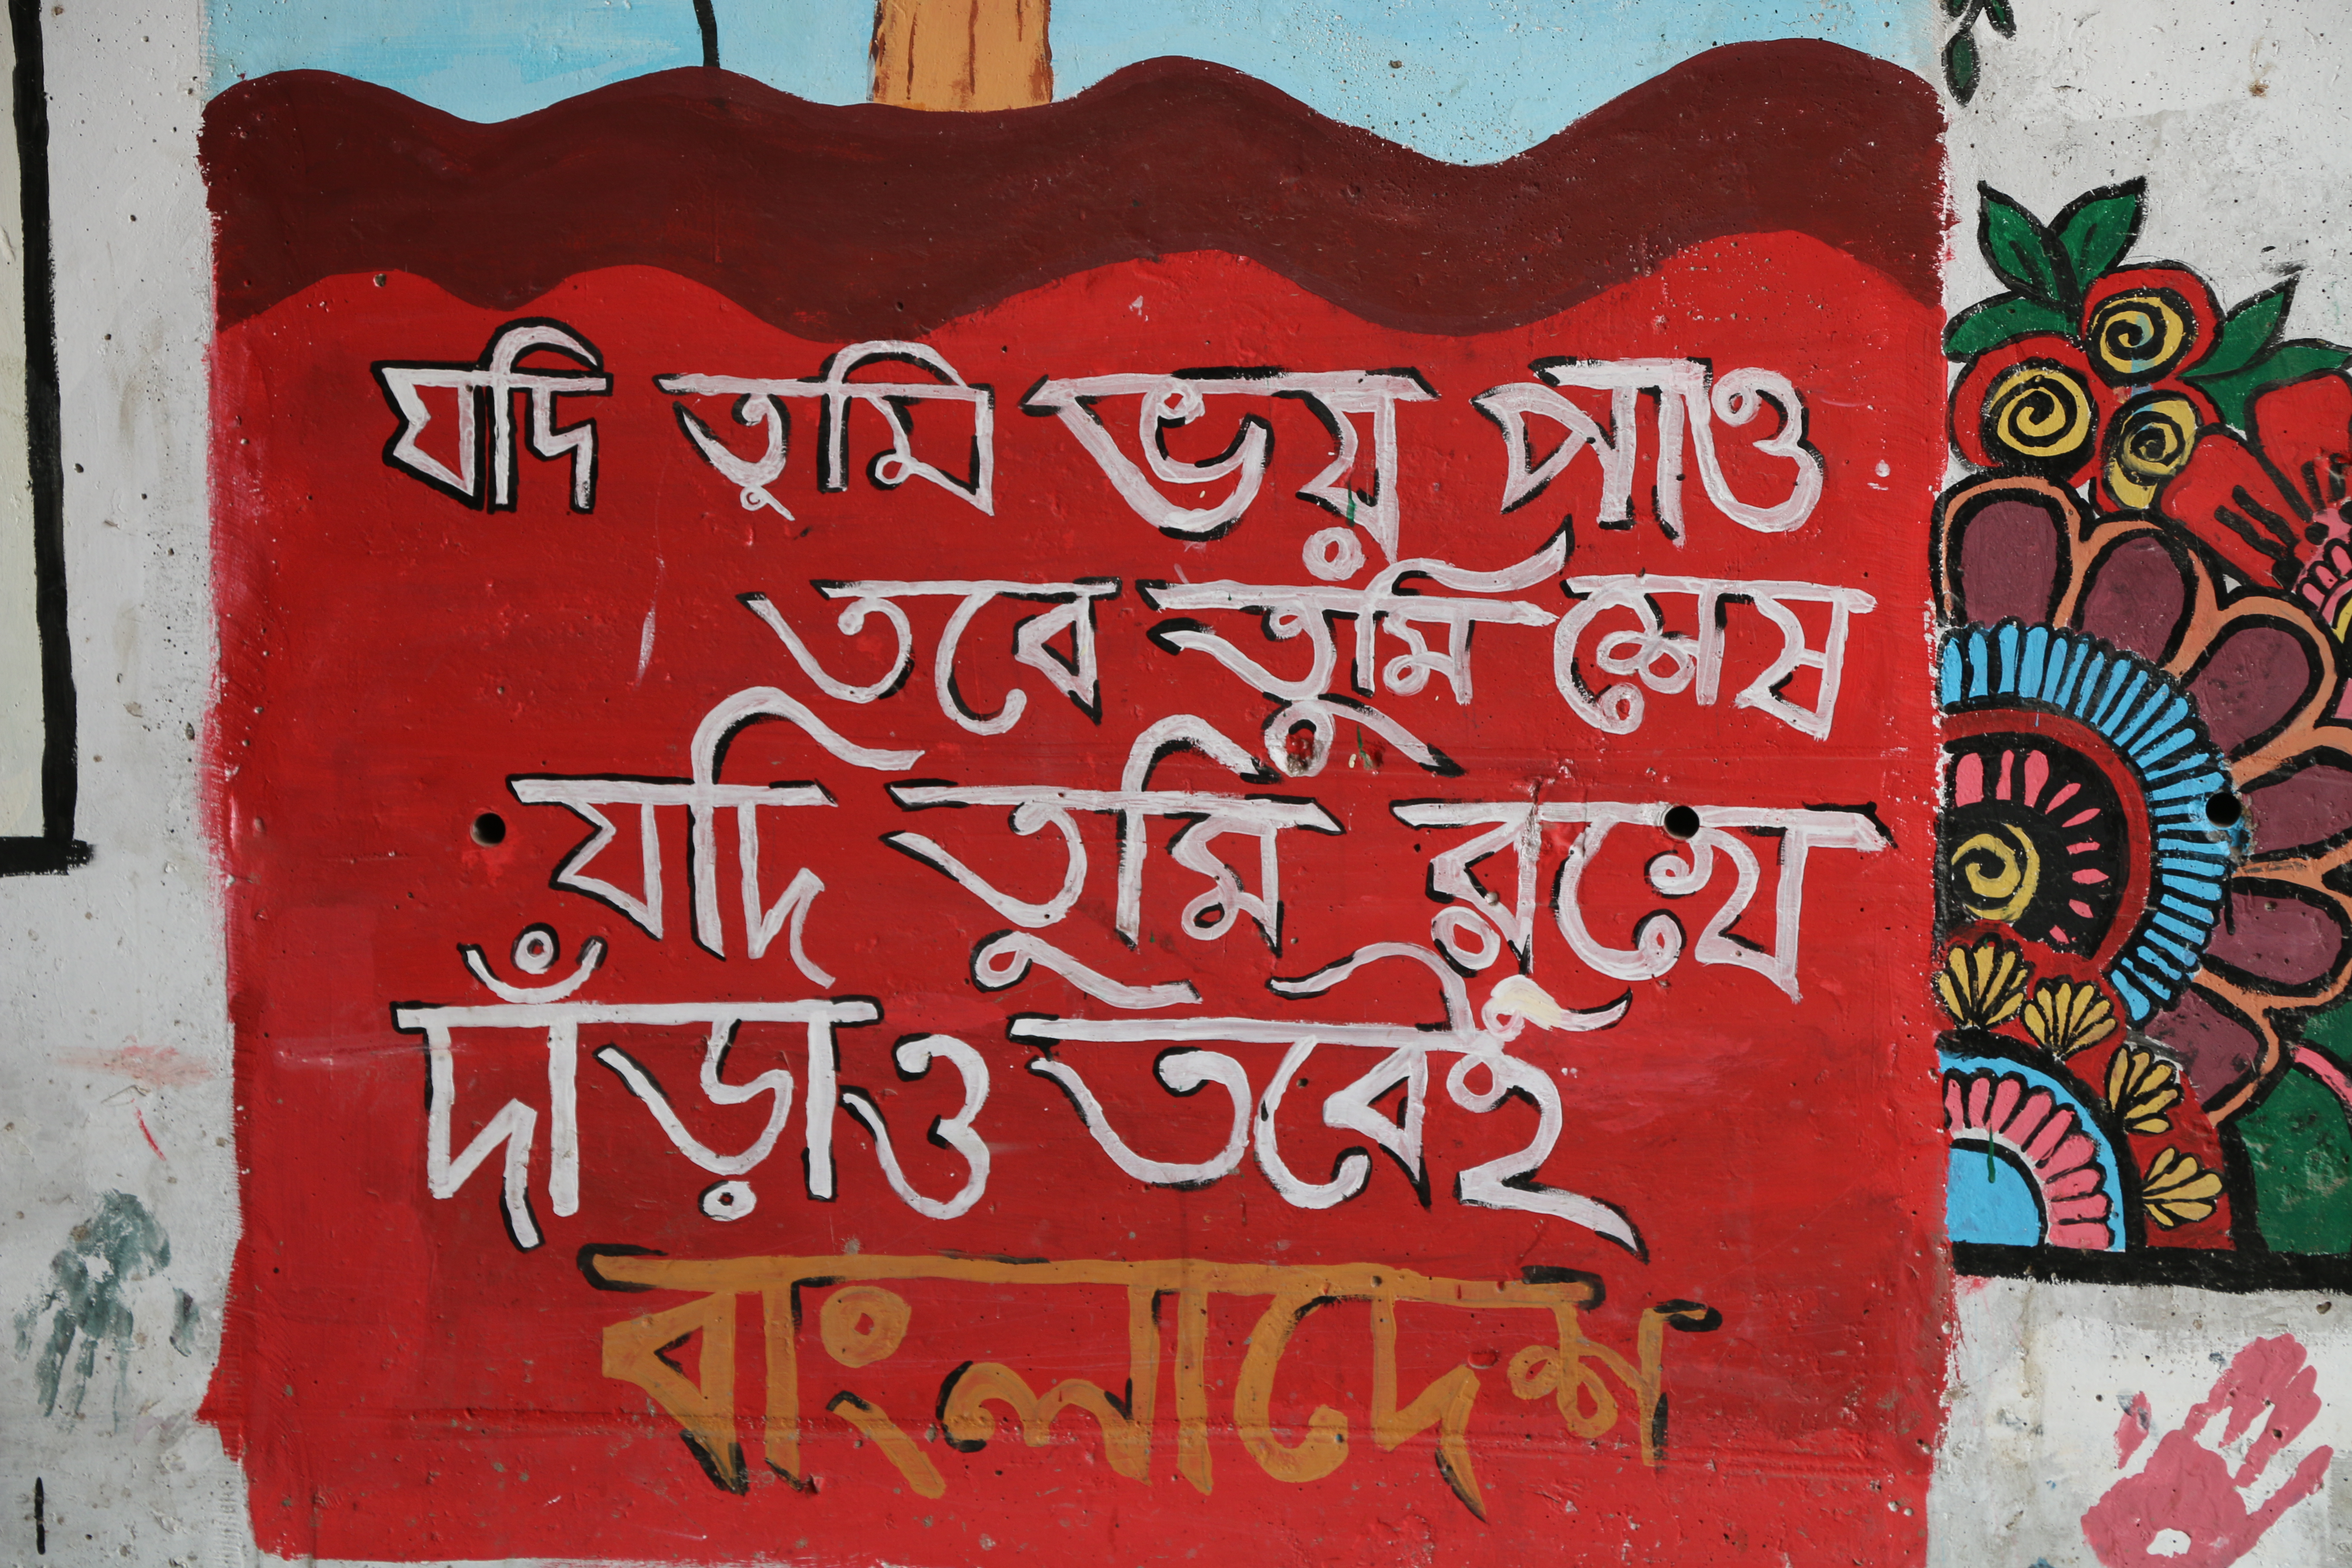 যদি তুমি ভয় পাও
তবে তুমি শেষ
যদি তুমি রুখে
দাঁড়াও তবেই
বাংলাদেশ